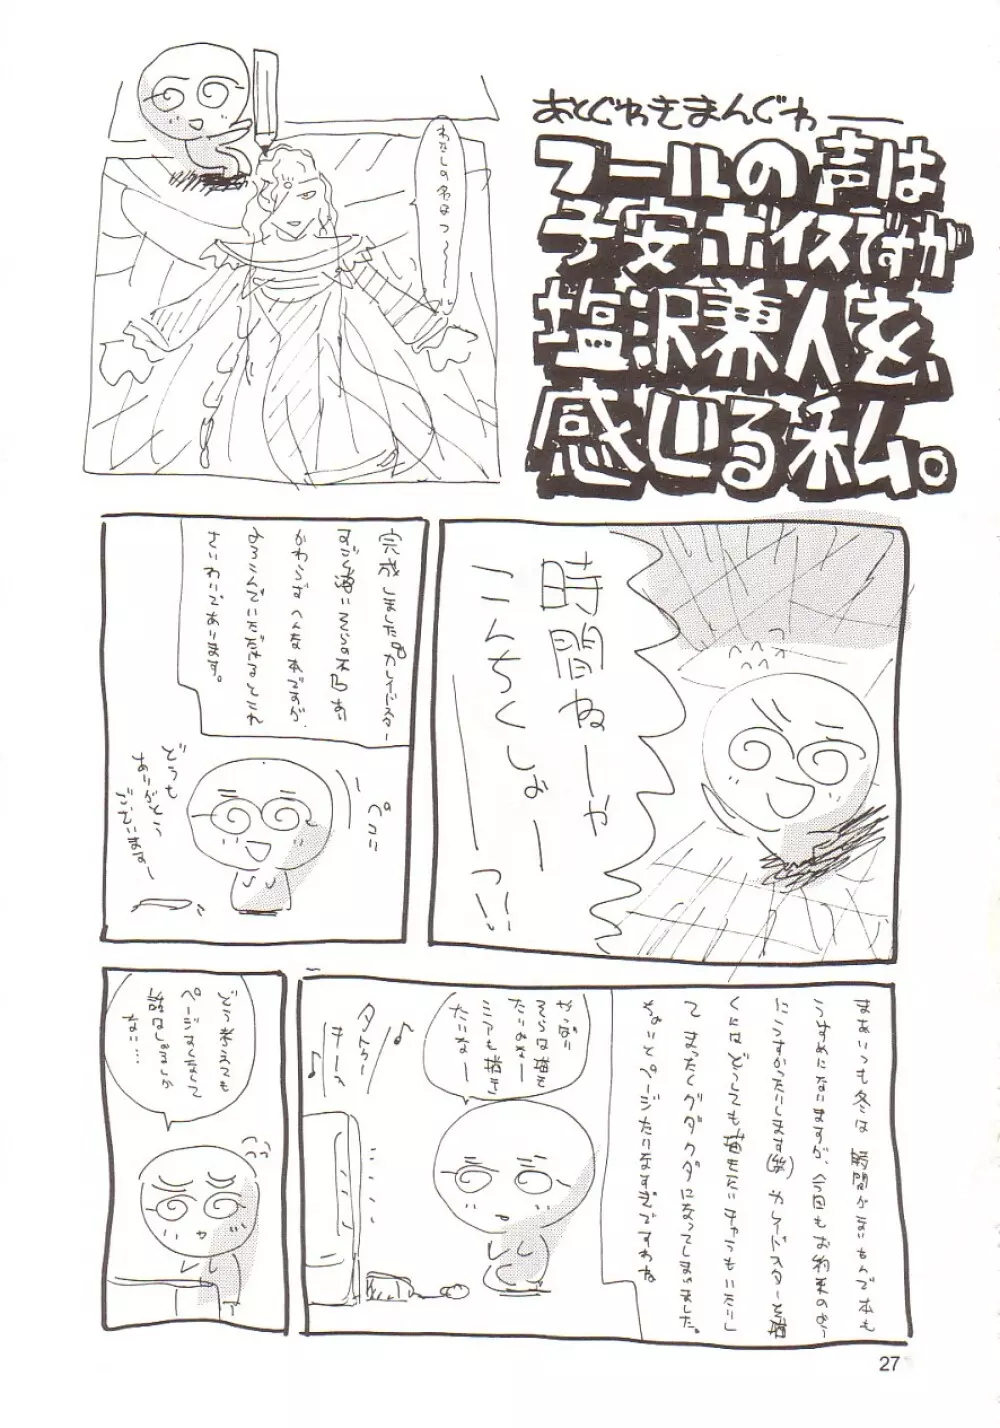 あとぐゎきまんぐゎー
フールの声は
子安ボイスですが
塩沢兼人を、
感じる私。
わたしの名はフ〜〜〜ル
時間ねーや
こんちくしょーっ!!
完成しました。カレイドスター
すごく濃いそらの本
かわらずへんな本ですが、
よろこんでいただけるとこれ
さいわいであります。
ペコリ
どうも
ありがとう
ございますー
まあいつも冬は時間がないもんで本も
うすめにないますが、今回もお約束のよう
にうすかったりします(笑)カレイドスターを描
くにはどうしても描きたいキャラもいたりし
て まったくグダグダになってしまいました。
ちょいとページたりなすぎですわね
やっぱい
そらは描き
たいよなー
ミアも描き
たいなー
どう考えても
ページすくなくて
話はしょるしか
ない…
27